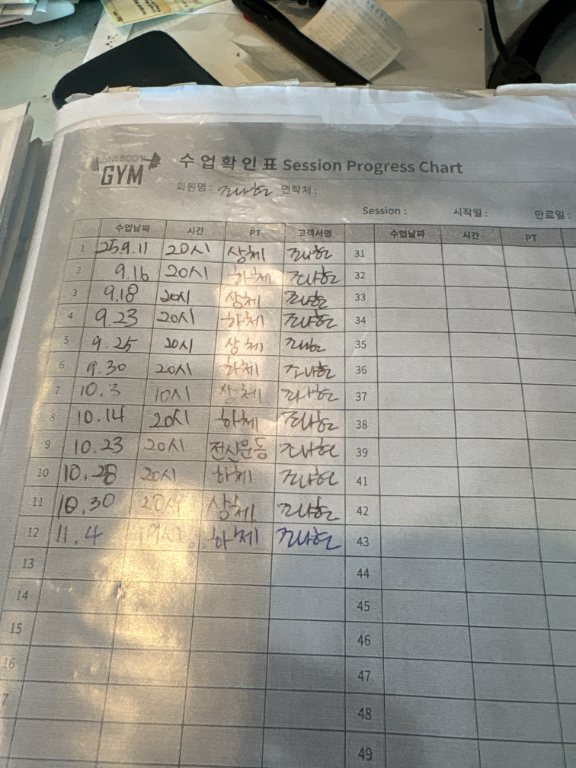 GYM
수업확인표 Session Progress Chart
회원명 : 조나현 연락처 :
Session : 시작일 : 만료일 :
수업날짜 시간 PT 고객서명 수업날짜 시간 PT
1 25.9.11 20시 상체 조나현 31
2 9.16 20시 하체 조나현 32
3 9.18 20시 상체 조나현 33
4 9.23 20시 하체 조나현 34
5 9.25 20시 상체 조나현 35
6 9.30 20시 하체 조나현 36
7 10.3 10시 상체 조나현 37
8 10.14 20시 하체 조나현 38
9 10.23 20시 전신운동 조나현 39
10 10.28 20시 하체 조나현 41
11 10.30 20시 상체 조나현 42
12 11.4 19시 하체 조나현 43
13 44
14 45
15 46
16 47
7 48
49